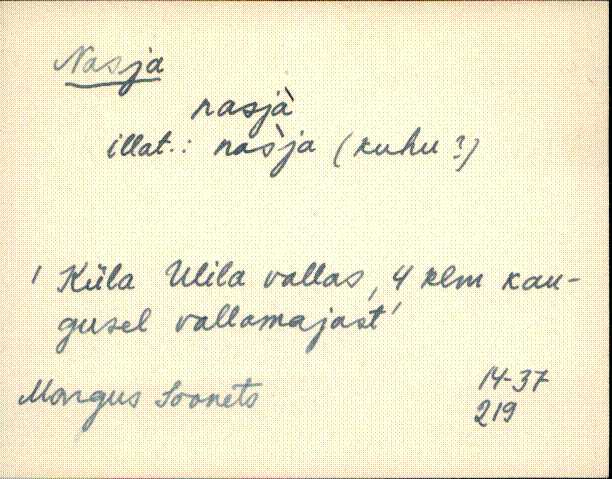 Nasja
nasjà
illat.: nas̀ja (kuhu?)
' Küla Ulila vallas, 4 klm kau-
gusel vallamajast'
Margus Soonets
14-37
219